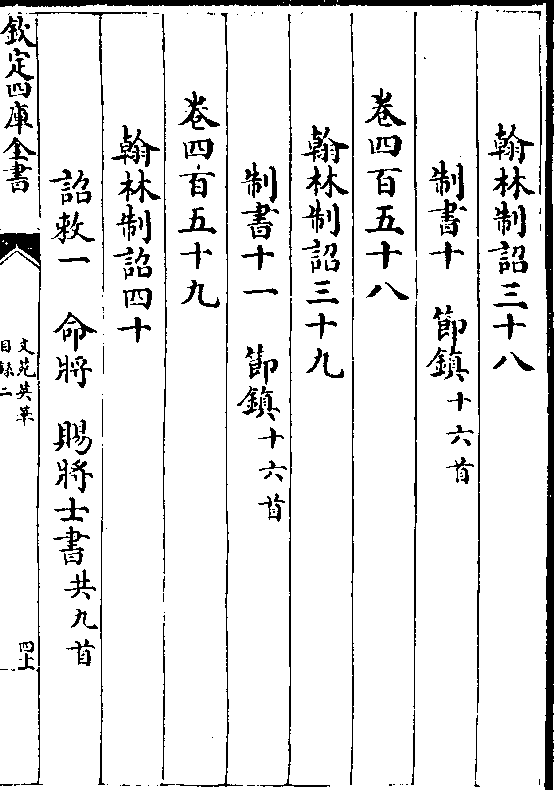 翰林制詔三十八
制書十　節鎮十六首
卷四百五十八
翰林制詔三十九
制書十一　節鎮十六首
卷四百五十九
翰林制詔四十
詔敕一　命將　賜將士書共九首
欽定四庫全書
文苑英華
目録二
四上